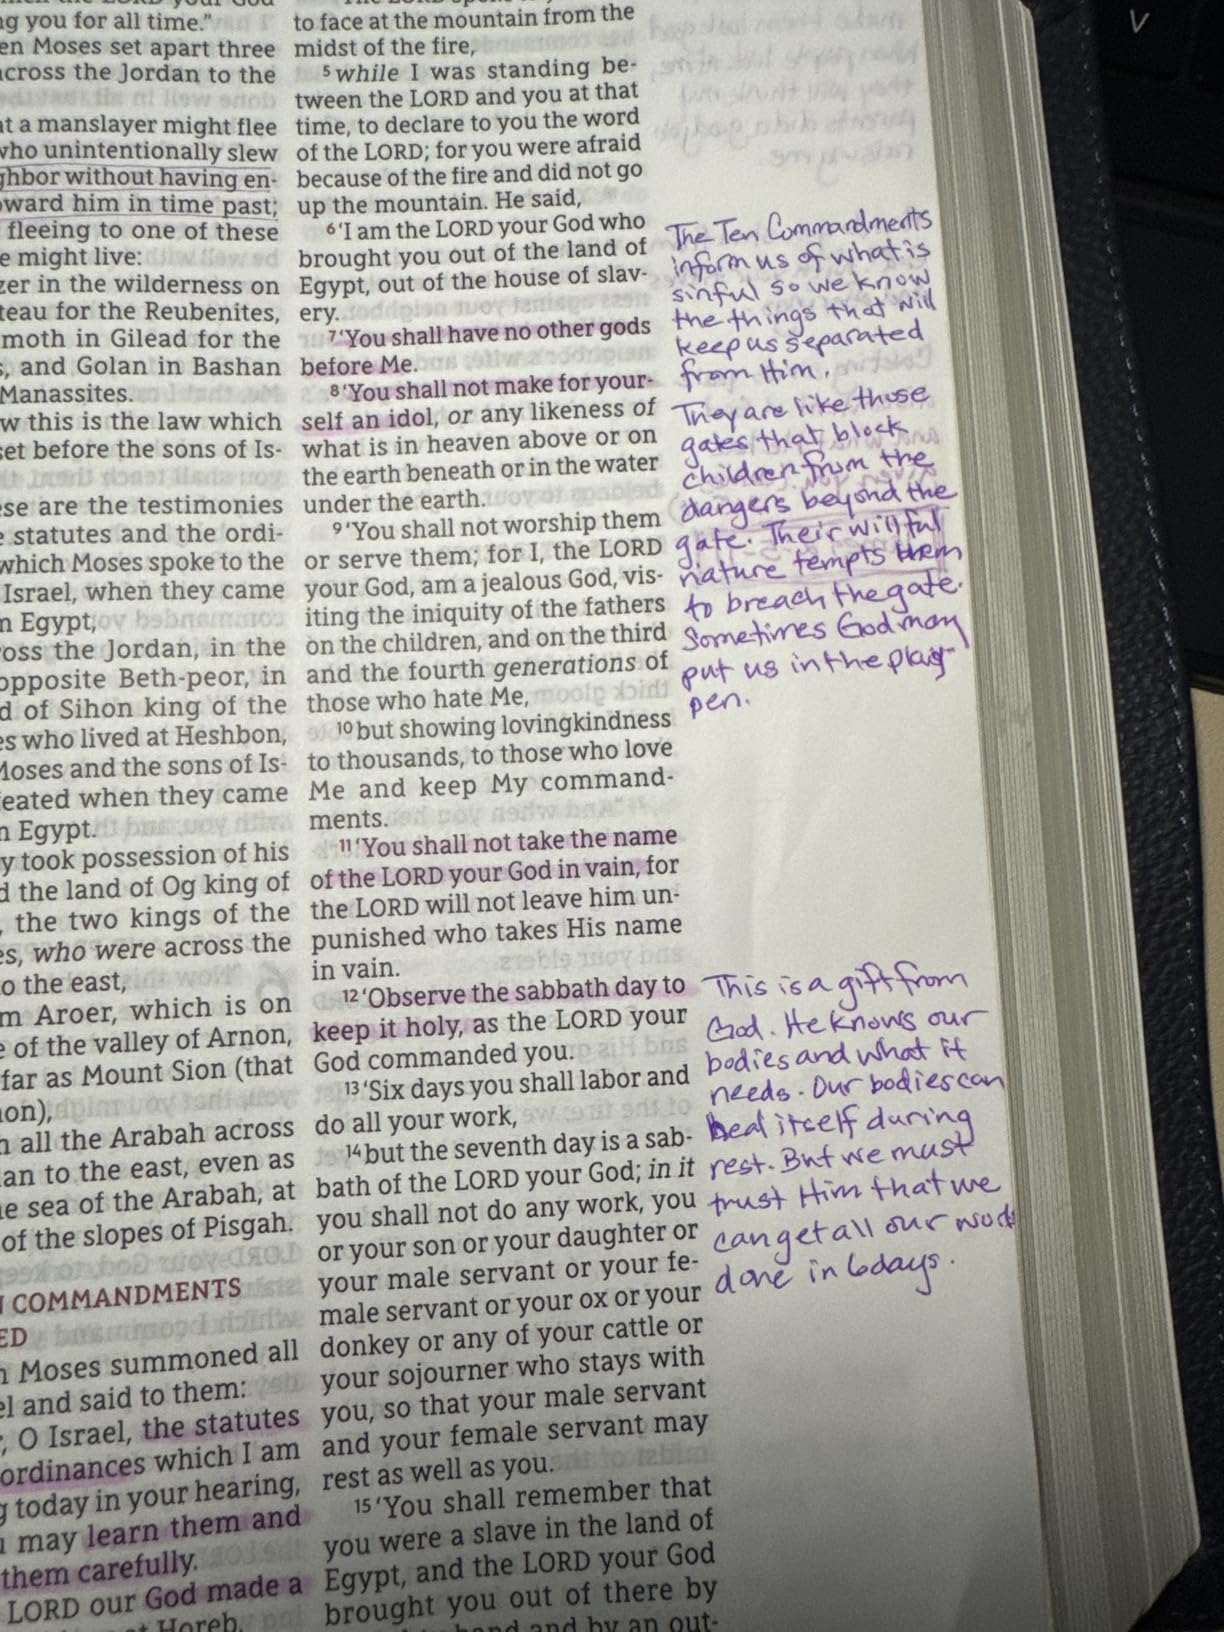 g you for all time."
en Moses set apart three
across the Jordan to the
at a manslayer might flee
who unintentionally slew
ghbor without having en-
oward him in time past;
fleeing to one of these
e might live:
zer in the wilderness on
teau for the Reubenites,
moth in Gilead for the
s, and Golan in Bashan
Manassites.
w this is the law which
set before the sons of Is-
ese are the testimonies
e statutes and the ordi-
which Moses spoke to the
Israel, when they came
n Egypt,
ross the Jordan, in the
opposite Beth-peor, in
d of Sihon king of the
es who lived at Heshbon,
Moses and the sons of Is-
feated when they came
n Egypt.
y took possession of his
d the land of Og king of
, the two kings of the
es, who were across the
o the east,
m Aroer, which is on
e of the valley of Arnon,
far as Mount Sion (that
non),
h all the Arabah across
dan to the east, even as
he sea of the Arabah, at
of the slopes of Pisgah.
N COMMANDMENTS
ED
n Moses summoned all
el and said to them:
, O Israel, the statutes
ordinances which I am
g today in your hearing,
u may learn them and
them carefully.
LORD our God made a
t Horeb.
to face at the mountain from the
midst of the fire,
5 while I was standing be-
tween the LORD and you at that
time, to declare to you the word
of the LORD; for you were afraid
because of the fire and did not go
up the mountain. He said,
6 'I am the LORD your God who
brought you out of the land of
Egypt, out of the house of slav-
ery.
7 'You shall have no other gods
before Me.
8 'You shall not make for your-
self an idol, or any likeness of
what is in heaven above or on
the earth beneath or in the water
under the earth.
9 'You shall not worship them
or serve them; for I, the LORD
your God, am a jealous God, vis-
iting the iniquity of the fathers
on the children, and on the third
and the fourth generations of
those who hate Me,
10 but showing lovingkindness
to thousands, to those who love
Me and keep My command-
ments.
11 'You shall not take the name
of the LORD your God in vain, for
the LORD will not leave him un-
punished who takes His name
in vain.
12 'Observe the sabbath day to
keep it holy, as the LORD your
God commanded you.
13 'Six days you shall labor and
do all your work,
14 but the seventh day is a sab-
bath of the LORD your God; in it
you shall not do any work, you
or your son or your daughter or
your male servant or your fe-
male servant or your ox or your
donkey or any of your cattle or
your sojourner who stays with
you, so that your male servant
and your female servant may
rest as well as you.
15 'You shall remember that
you were a slave in the land of
Egypt, and the LORD your God
brought you out of there by
hand and by an out-
The Ten Commandments
inform us of what is
sinful so we know
the things that will
keep us separated
from Him.
They are like those
gates that block
children from the
dangers beyond the
gate. Their willful
nature tempts them
to breach the gate.
Sometimes God may
put us in the play
pen.
This is a gift from
God. He knows our
bodies and what it
needs. Our bodies can
heal itself during
rest. But we must
trust Him that we
can get all our work
done in 6 days.
V